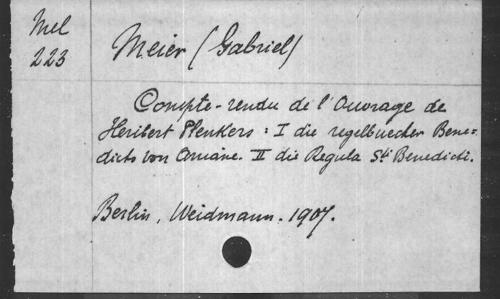 Mel
223
Meier (Gabriel)
Compte-rendu de l'Ouvrage de
Heribert Plenkers : I die regelbuecher Bene=
dicts von Aniane. II die Regula Sti Benedicti.
Berlin, Weidmann. 1907.